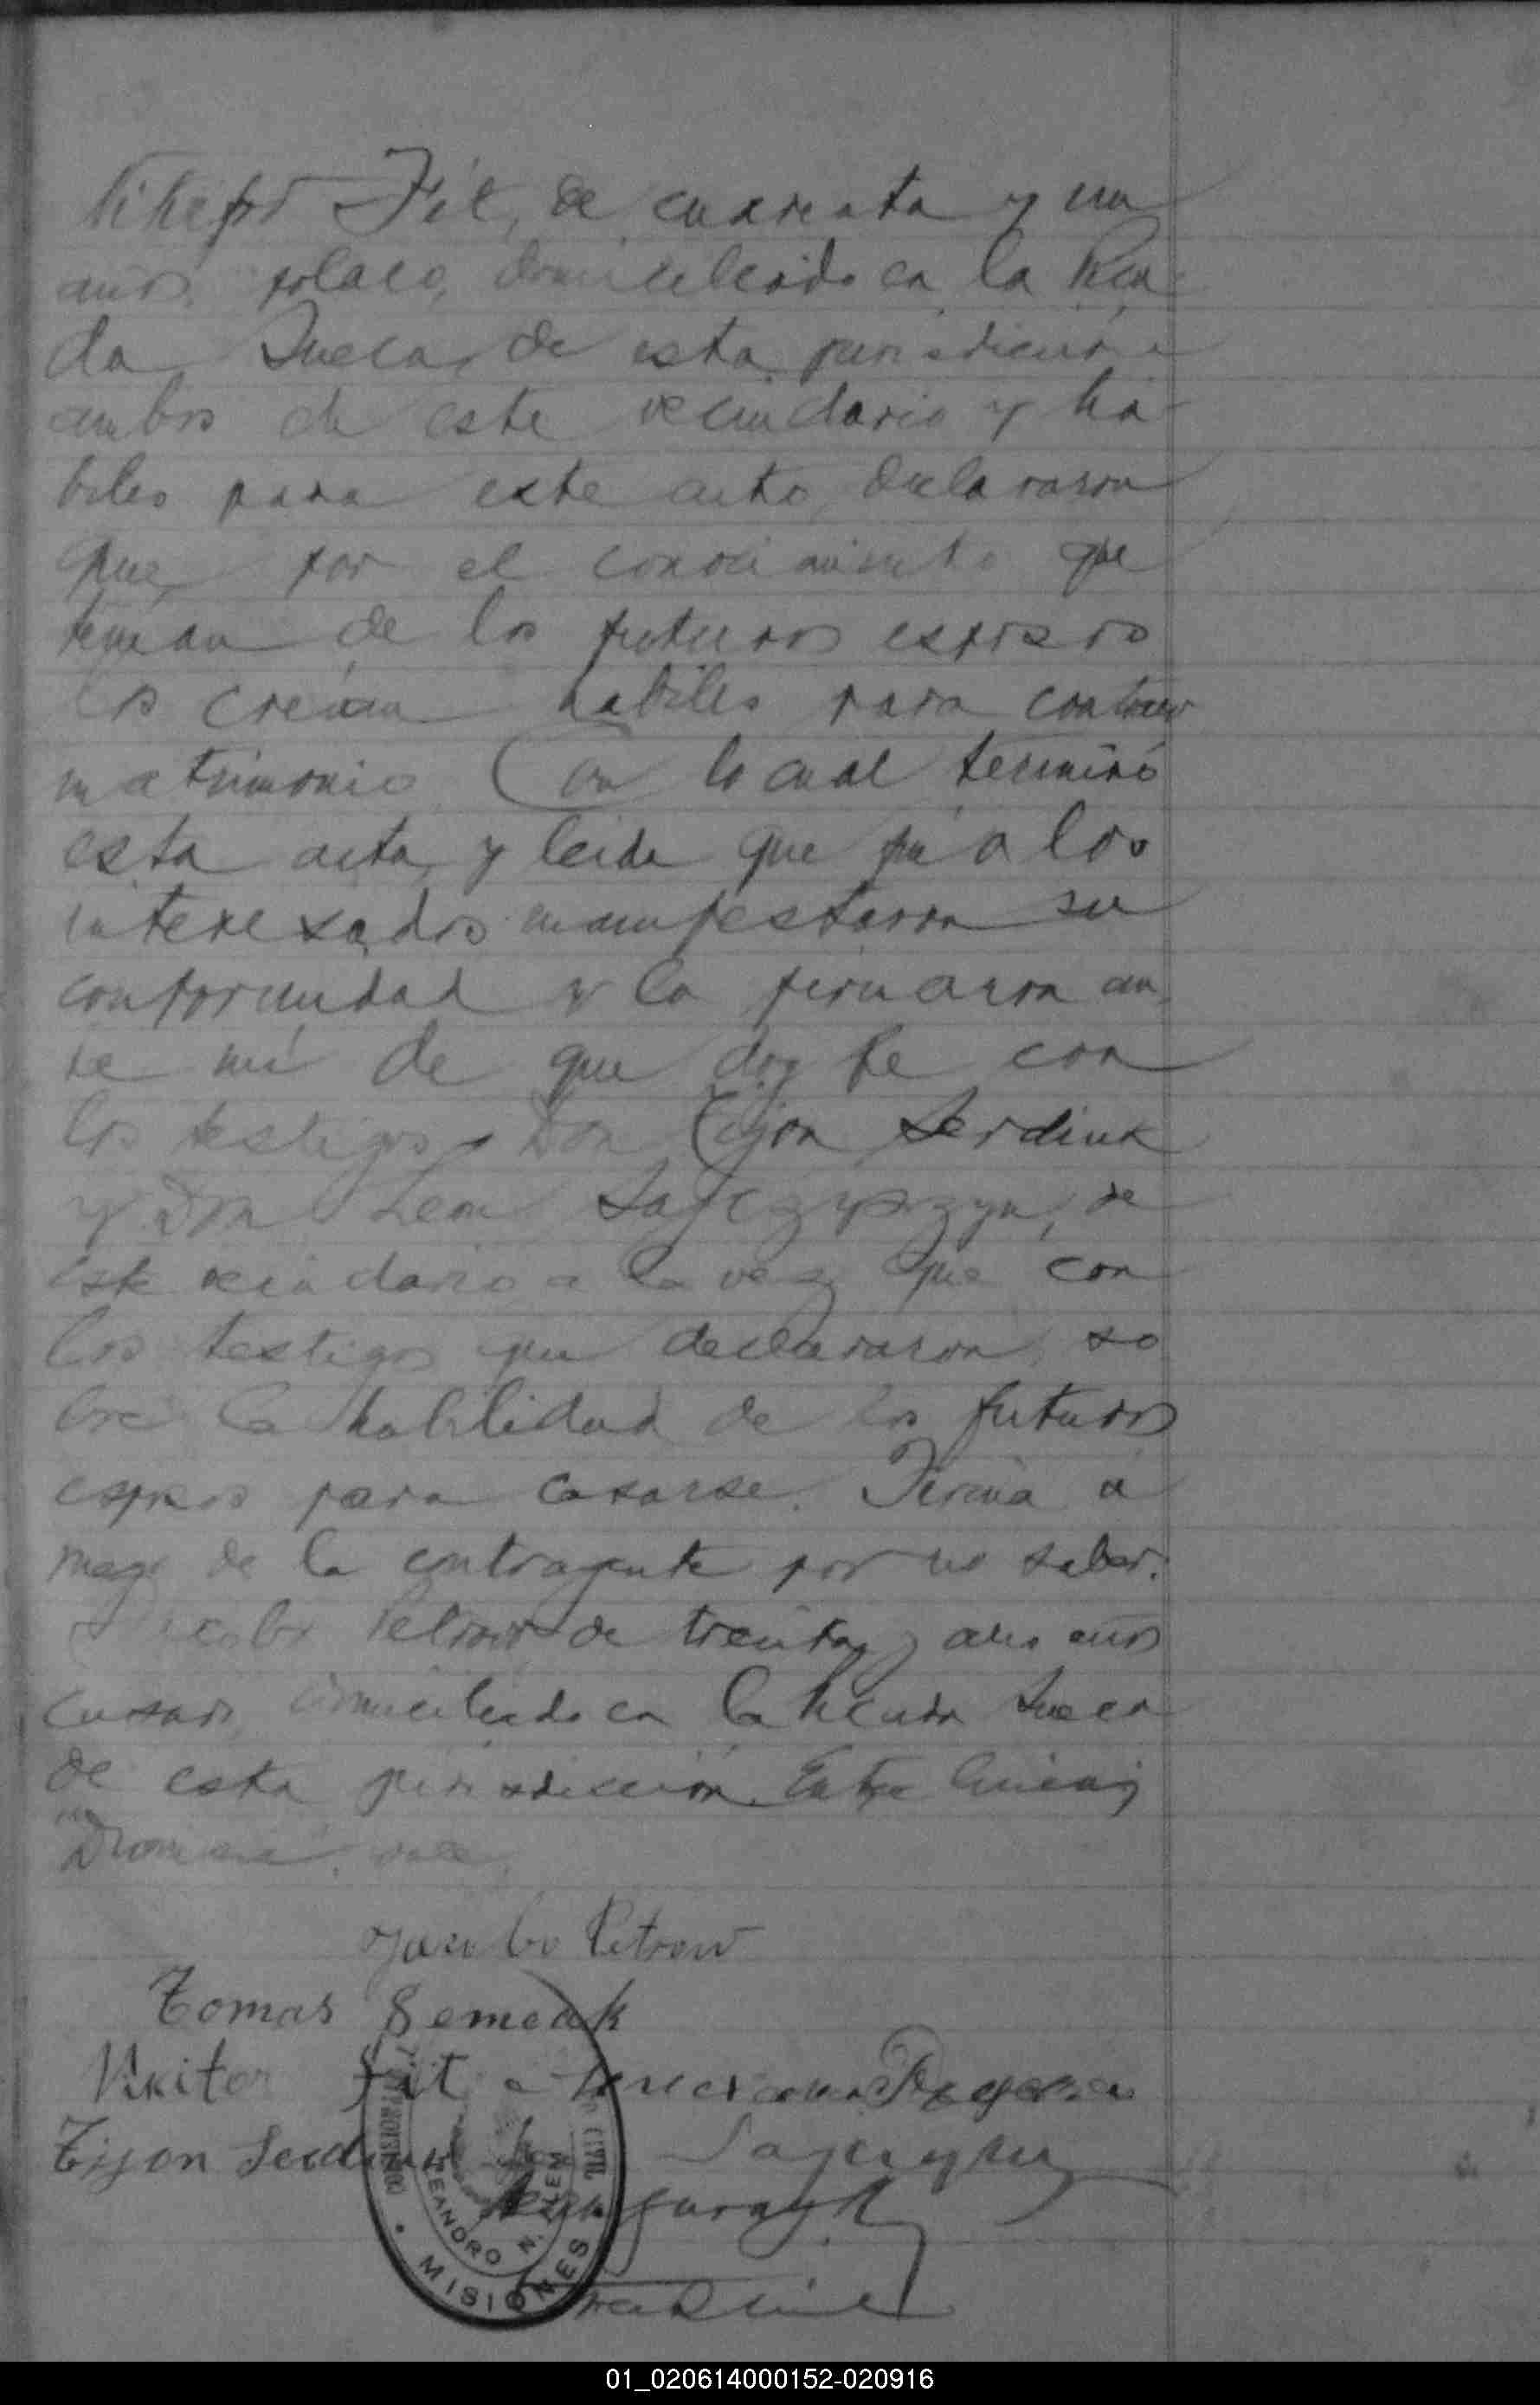 Fit, de cuarenta y un
años, polaco, domiciliado en la Pica-
da Sueca, de esta jurisdicción
ambos de este vecindario y há-
biles para este acto, declararon
que, por el conocimiento que
tenían de los futuros esposos
los creían habiles para contraer
matrimonio. Con lo cual terminó
esta acta, y leida que fué a los
interesados manifestaron su
conformidad y la firmaron an-
te mí de que doy fe con
los testigos Don Tijon Serdiuk
y Don Leon de
este vecindario a la vez que con
los testigos que declararon so
bre la habilidad de los futuros
esposos para casarse. Firma a
ruego de la contrayente por no saber.
Petrow de treinta y años
casado, domiciliado en la Picada Sueca
de esta jurisdicción. Entre lineas
vale.
Jacobo Petrow
Tomas Semeak
Fit
Tijon Serdiuk
CIVIL
LEANDRO N. ALEM
• MISIONES •
01_020614000152-020916